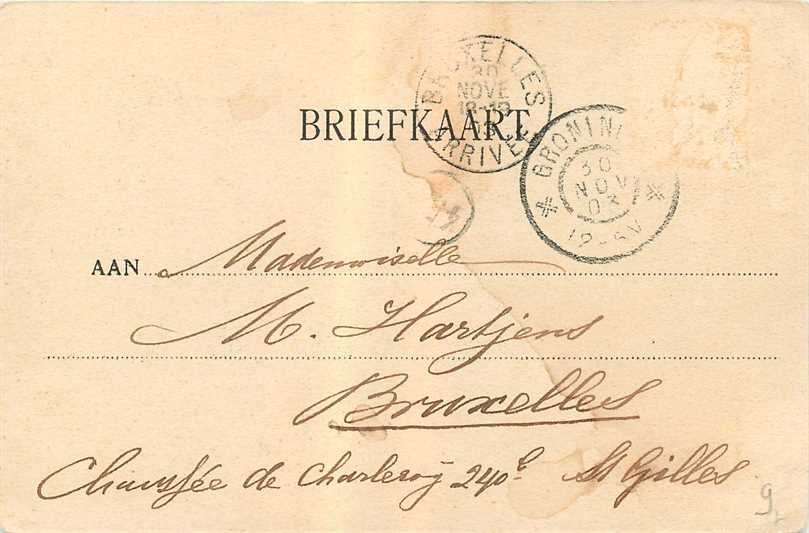 BRUXELLES
30
NOVE
ARRIVÉE
BRIEFKAART
GRONIN
30
NOV
03
12-5V
AAN Mademoiselle
M. Hartjens
Bruxelles
Chaussée de Charleroij 240E St Gilles
9